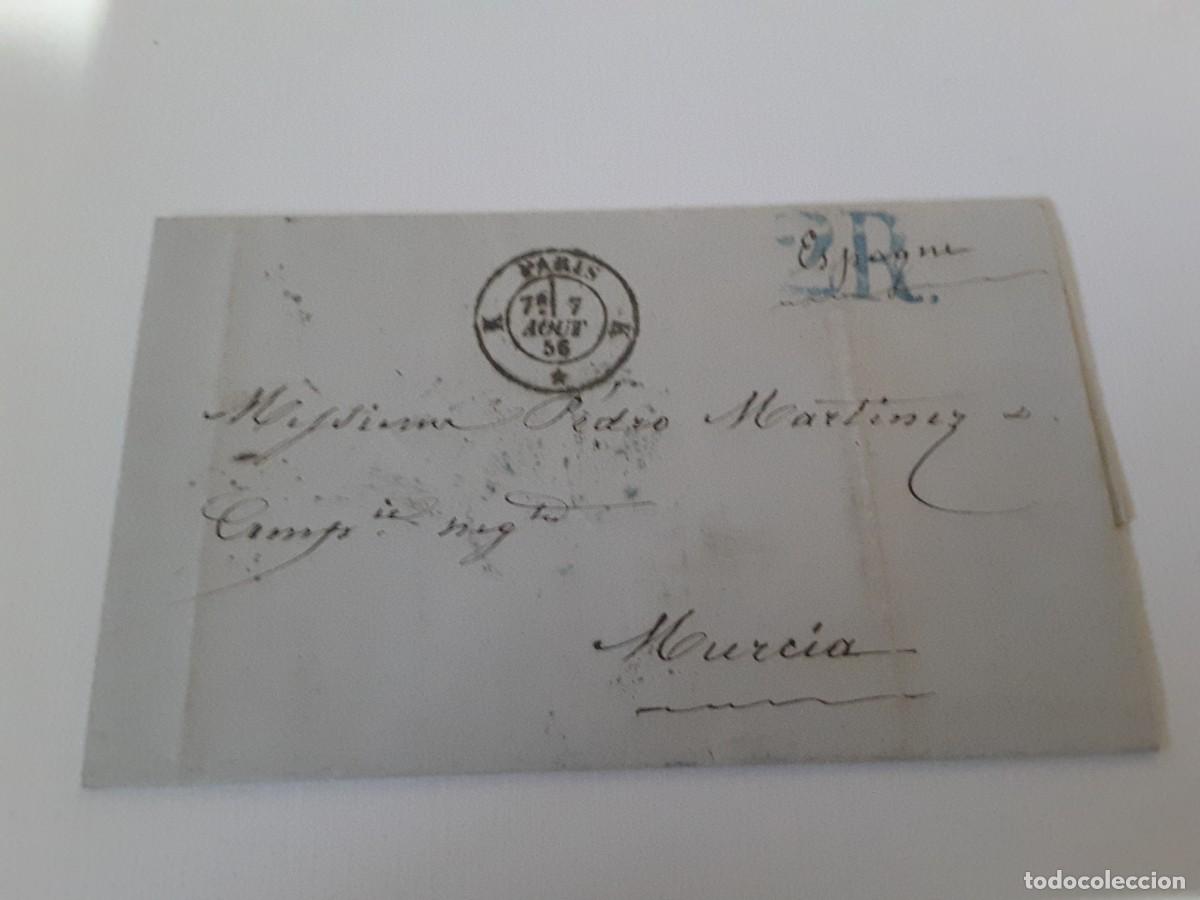 Espagne
2R.
PARIS
7E 7
AOUT
56
K K
Messieurs Pédro Martinez &
Comp ie neg ts
Murcia
todocoleccion